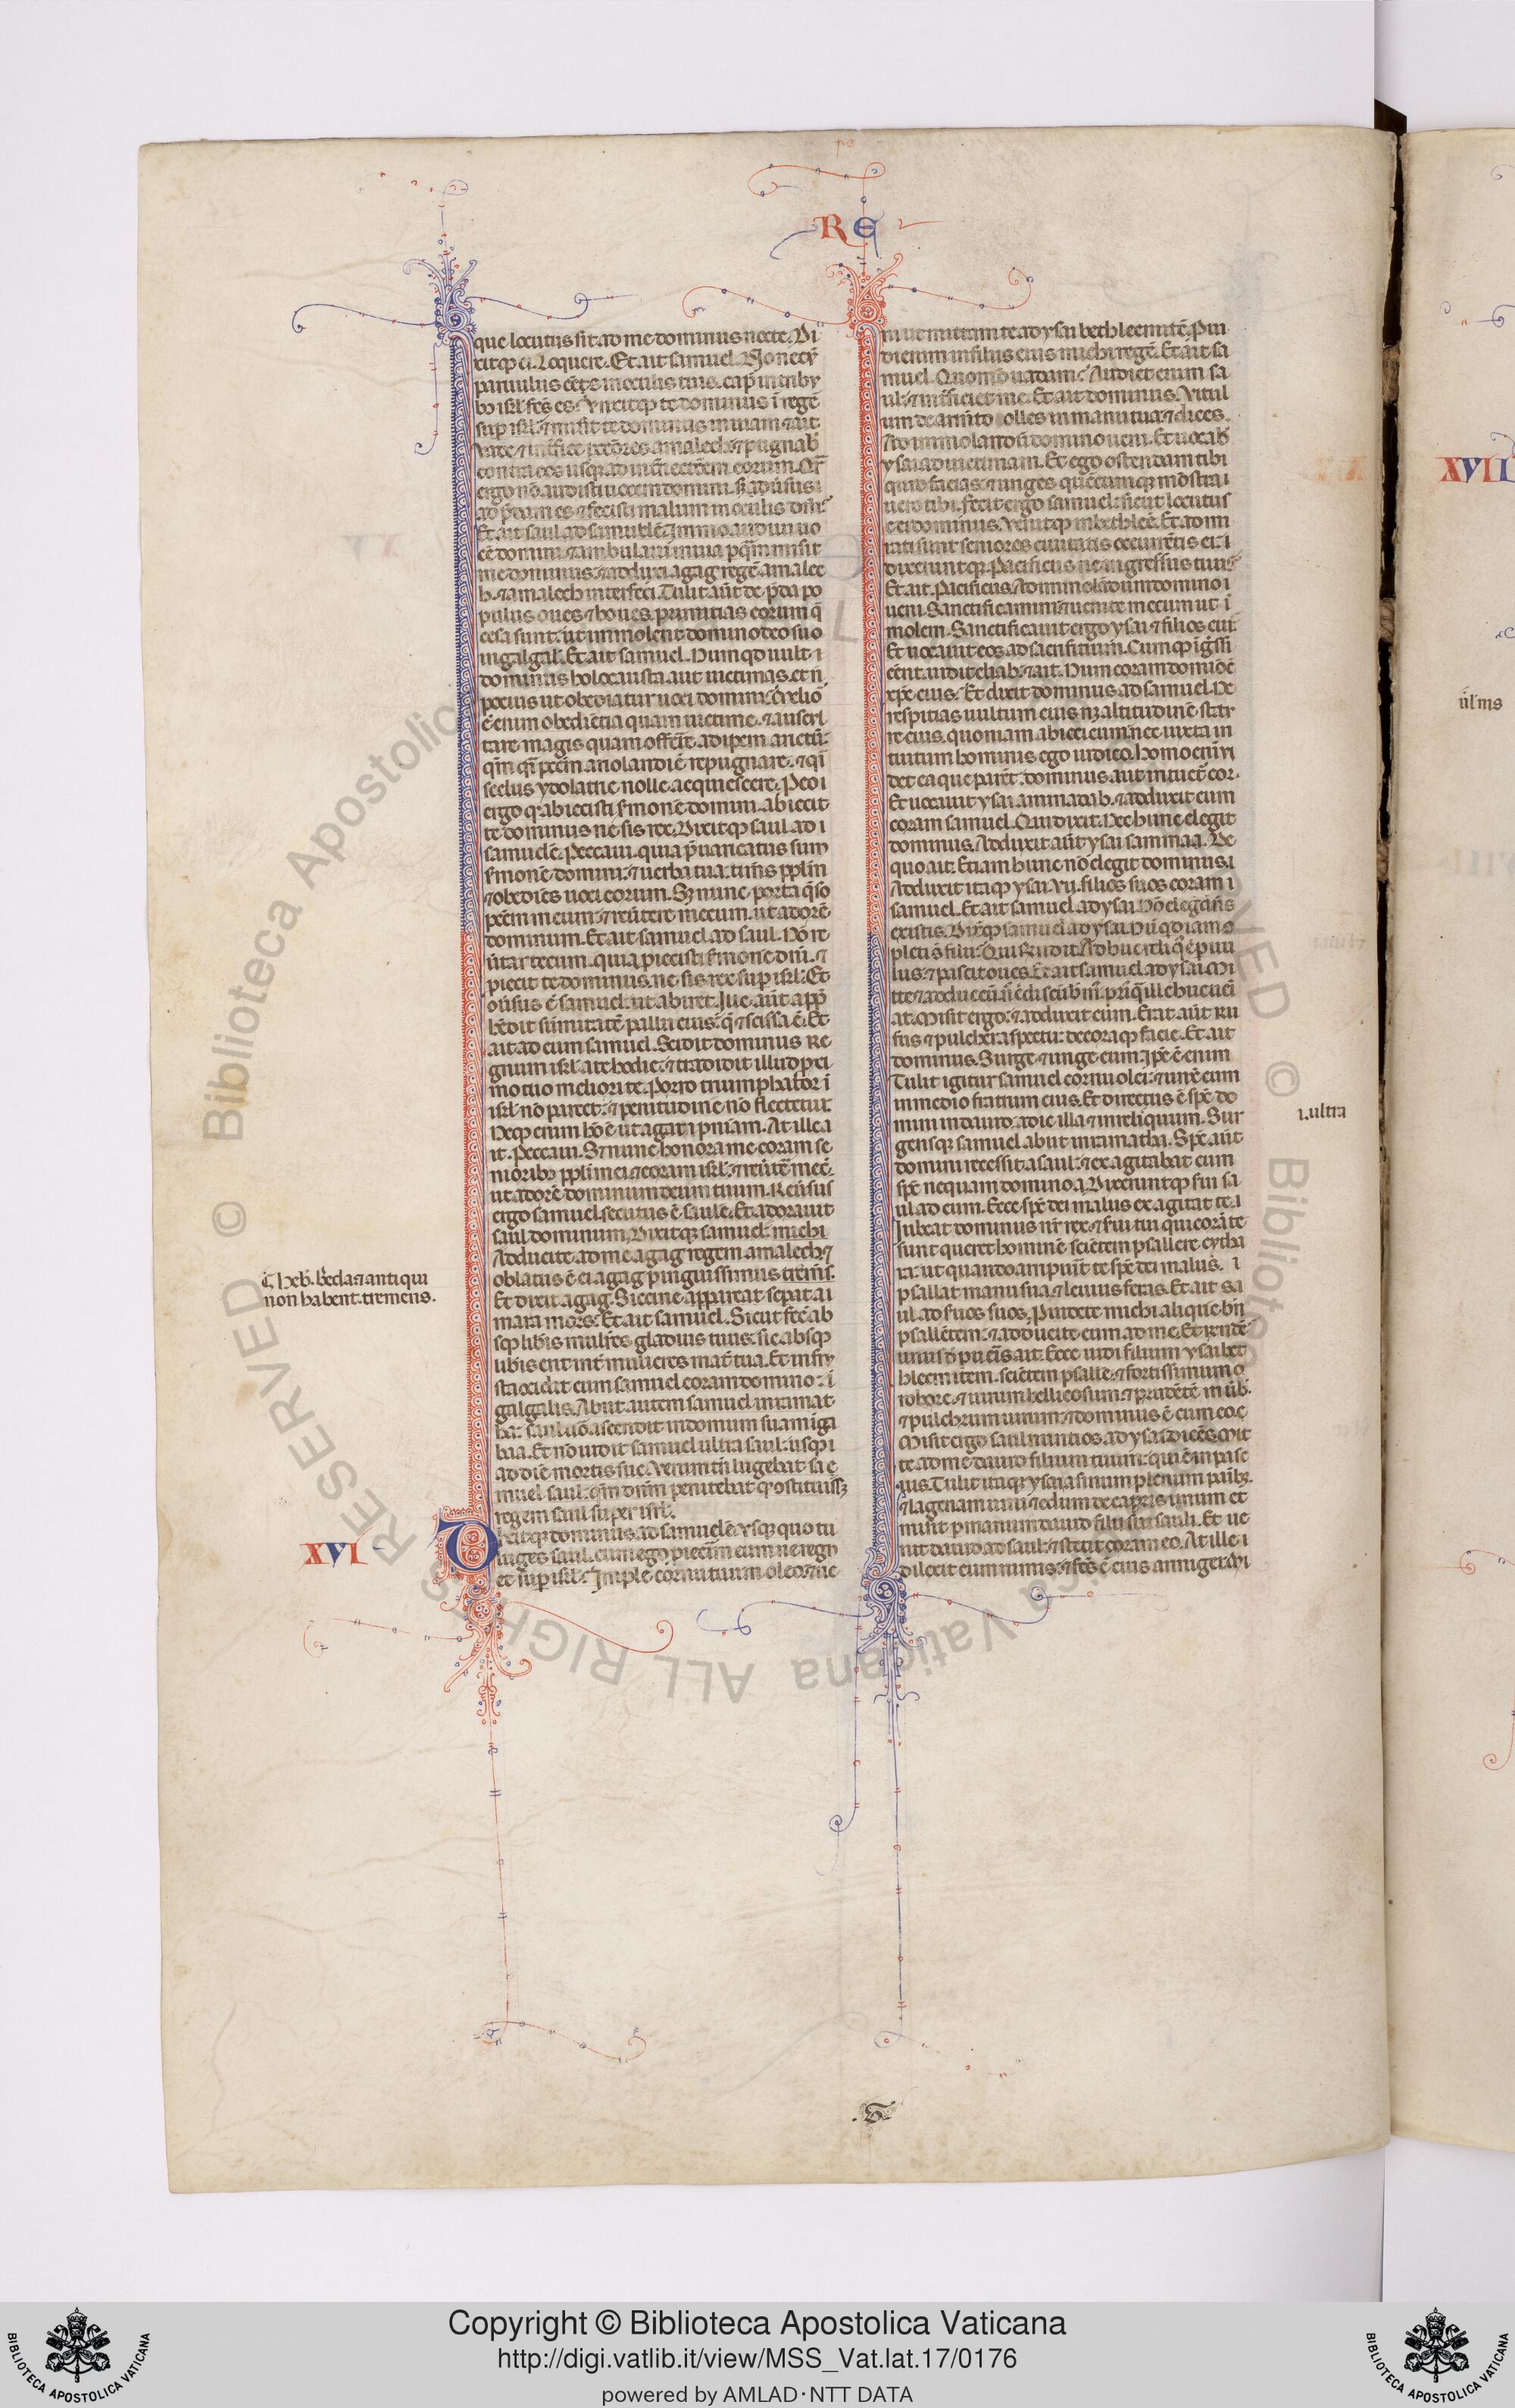 RE
que locutus sit ad me dominus nocte. Di
xitqꝫ ei. Loquere. Et ait samuel. Nonne cū
paruulus eēs in oculis tuis. cap̄ in tribꝫ
bꝫ isrl̄ fc̄s es: Vnxitqꝫ te dominus ī regē
suꝑ isrl̄: ⁊ misit te dominus in uiam ⁊ ait
Vade ⁊ int̄fice pctōres amalech: ⁊ pugnab̄
contra eos usqꝫ ad int̄nectōem eorum. Qr̄
ergo nō audisti uocem domini. sꝫ ad ūsus i
ad p̄dam es ⁊ fecisti malum in oculis dn̄i:
Et ait saul ad samuelē. Immo audiui uo
cē domini ⁊ ambulaui in uia ꝑ q̄m misit
me dominus: ⁊ adduxi agag regē amalec
h. ⁊ amalech interfeci. Tulit aūt de p̄da po
pulus oues ⁊ boues primitias eorum q̄
cesa sunt: ut immolent domino deo suo
in galgal̄. Et ait samuel. Numqd uult i
dominus holocausta aut uictimas. et n̄
pocius ut obediatur uoci domini: Melio
ē enim obediētia quam uictime: ⁊ auscul
tare magis quam offerre adipem arietū:
qm̄ q̄i pctm̄ ariolandi ē repugnare: ⁊ q̄i
scelus ydolatrie nolle acquiescere. Pro i
ergo qꝫ abiecisti ẜmonē domini. abiecit
te dominus ne sis rex. Dixitqꝫ saul ad i
samuelē. Peccaui. quia p̄uaricatus sum
ẜmonē domini: ⁊ uerba tua: timēs ppl̄m
⁊ obediēs uoci eorum. Sꝫ nunc porta q̄so
pctm̄ meum: ⁊ reūtere mecum. ut adorē
dominum. Et ait samuel ad saul. Nō re
ūtar tecum. quia proiecisti ẜmonē dn̄i. ⁊
proiecit te dominus. ne sis rex suꝑ isrl̄: Et
ūsus ē samuel: ut abiret. Ille aūt app̄
hēdit sūmitatē pallii eius: q̄ ⁊ scissa ē. Et
ait ad eum samuel. Scidit dominus Re
gnum isrl̄ a te hodie: ⁊ tradidit illud proxi
mo tuo meliori te. Porro triumphator ī
isrl̄ nō parcet: ⁊ penitudine nō flectetur.
Neqꝫ enim hō ē ut agat i pn̄iam. At ille a
it. Peccaui. Sꝫ nunc honora me coram se
nioribꝫ ppl̄i mei ⁊ coram isrl̄: ⁊ reūtē mecū.
ut adorē dominum deum tuum. Reūsus
ergo samuel. secutus ē saulē. Et adorauit
saul dominum. Dixitqꝫ samuel: michi
Adducite ad me agag regem amalech: ⁊
oblatus ē ei agag pinguissimus tremēs.
Et dixit agag. Siccine. appareat sepat ai
mara mors: Et ait samuel. Sicut fecit ab
sqꝫ libis mulieres gladius tuus: sic absqꝫ
libis erit int̄ mulieres mat̄ tua. Et in fru
sta cidit eum samuel coram domino: ī
galgalis. Abiit autem samuel in ramat
ha: saul uō ascendit in domum suam ī ga
baa. Et nō uidit samuel ultra saul: usqꝫ i
ad diē mortis sue. Verum tn̄ lugebat sa e
muel saul: qm̄ dn̄m penitebat qꝫ ostituissꝫ
regem saul super isrl̄.
Dixitqꝫ dominus. ad samuelē. Vsqꝫ quo tu
luges saul. cum ego proiecim̄ eum ne regn
et suꝑ isrl̄: Imple cornu tuum oleo: ⁊ ue
XVI
Ī Heb̄. Beda ⁊ antiqui
non habent. tremens.
ni ut mittam te ad ysai bethleemitē. Pui
di enim in filiis eius michi regē. Et ait sa
muel. Quomō uadam: Audiet enim sa
ul: ⁊ int̄ficiet me. Et ait dominus. Vitul
um de armēto tolles in manu tua: ⁊ dices.
Ad immolandū domino ueni. Et uocab̄
ysai ad uictimam. Et ego ostendam tibi
quid facias: ⁊ unges quēcumqꝫ mōstra i
uero tibi. Fecit ergo samuel: sicut locutus
e ei dominus. Venitqꝫ in bethleē. Et ad mi
rati sunt seniores ciuitatis occurrētes ei: i
dixeruntqꝫ. Pacificus ne ingressus tuus:
Et ait. Pacificus. Ad immolādum domino i
ueni. Sanctificamini: ⁊ uenite mecum ut ī
molem. Sanctificauit ergo ysai ⁊ filios eiꝰ
Et uocauit eos ad sacrificium. Cumqꝫ īgssi
eēnt. uidit eliab: ⁊ ait. Num coram domino ē
xp̄c eius: Et dixit dominus ad samuel. Ne
respicias uultum eius nꝫ altitudinē statu
re eius. quoniam abieci eum: nec iuxta in
tuitum hominis ego iudico. Homo enī ui
det ea que parēt. dominus aut̄ intuet̄ cor.
Et uocauit ysai aminadab. ⁊ adduxit eum
coram samuel. Qui dixit. Nec hunc elegit
dominus. Adduxit aūt ysai sammaa. De
quo ait. Etiam hunc nō elegit dominus. i
Adduxit itaqꝫ ysai vii. filios suos coram i
samuel. Et ait samuel ad ysai. Nō elegit dn̄s
ex istis. Dixitqꝫ samuel ad ysai. Nūqd iam ō
pleti sūt filii: Qui rn̄dit. Ad huc reliqꝰ ē paru
lus: ⁊ pascit oues. Et ait samuel ad ysai. Mi
tte ⁊ adduc eū. n̄ ēi discūbem̄. priꝰq̄ ille huc ueni
at. Misit ergo: ⁊ adduxit eum. Erat aūt Ru
fus ⁊ pulcher aspectu: decoraqꝫ facie. Et ait
dominus. Surge ⁊ unge eum: ip̄e ē enim
Tulit igitur samuel cornu olei: ⁊ unx̄ eum
in medio fratrum eius. Et directus ē sp̄c do
mini in dauid: a die illa ⁊ in reliquum. Sur
gensqꝫ samuel. abiit in ramatha. Sp̄c aūt
domini recessit a saul: ⁊ exagitabat eum
sp̄c nequam a domino. Dixeruntqꝫ ẜui sa
ul ad eum. Ecce sp̄c dei malus exagitat te. i
Iubeat dominus nr̄ rex. ⁊ ẜui tui qui corā te
sunt querēt hominē sciētem psallere cytha
ra: ut quando arripuit te sp̄c dei malus. i
psallat manu sua ⁊ leuius feras. Et ait sa
ul ad ẜuos suos. Prouidete michi alique bn̄
psallētem: ⁊ adducite eum ad me. Et rn̄dē
unus d̄ pueris ait. Ecce uidi filium ysai bet
hleemitem. sciētem psalle: ⁊ fortissimum o
robore. ⁊ uirum bellicosum ⁊ prudētē in ūb.
⁊ pulchrum uirum: ⁊ dominus ē cum eo. e
Misit ergo saul nuntios. ad ysai dicēs. Mit
te ad me dauid filium tuum: qui ē in pasc
uis. Tulit itaqꝫ ysai asinum plenum panibꝫ.
⁊ lagenam uini ⁊ edum de capris unum et
misit ꝑ manum dauid filii sui sauli. Et ue
nit dauid ad saul: ⁊ stetit coram eo. At ille. i
dilexit eum nimis: ⁊ fc̄s ē eius armiger. Mi
XVII
uĺms
i. ultra
Copyright © Biblioteca Apostolica Vaticana
http://digi.vatlib.it/view/MSS_Vat.lat.17/0176
powered by AMLAD·NTT DATA
BIBLIOTECA APOSTOLICA VATICANA
BIBLIOTECA APOSTOLICA VATICANA
© Biblioteca Apostolica Vaticana ALL RIGHTS RESERVED © Biblioteca